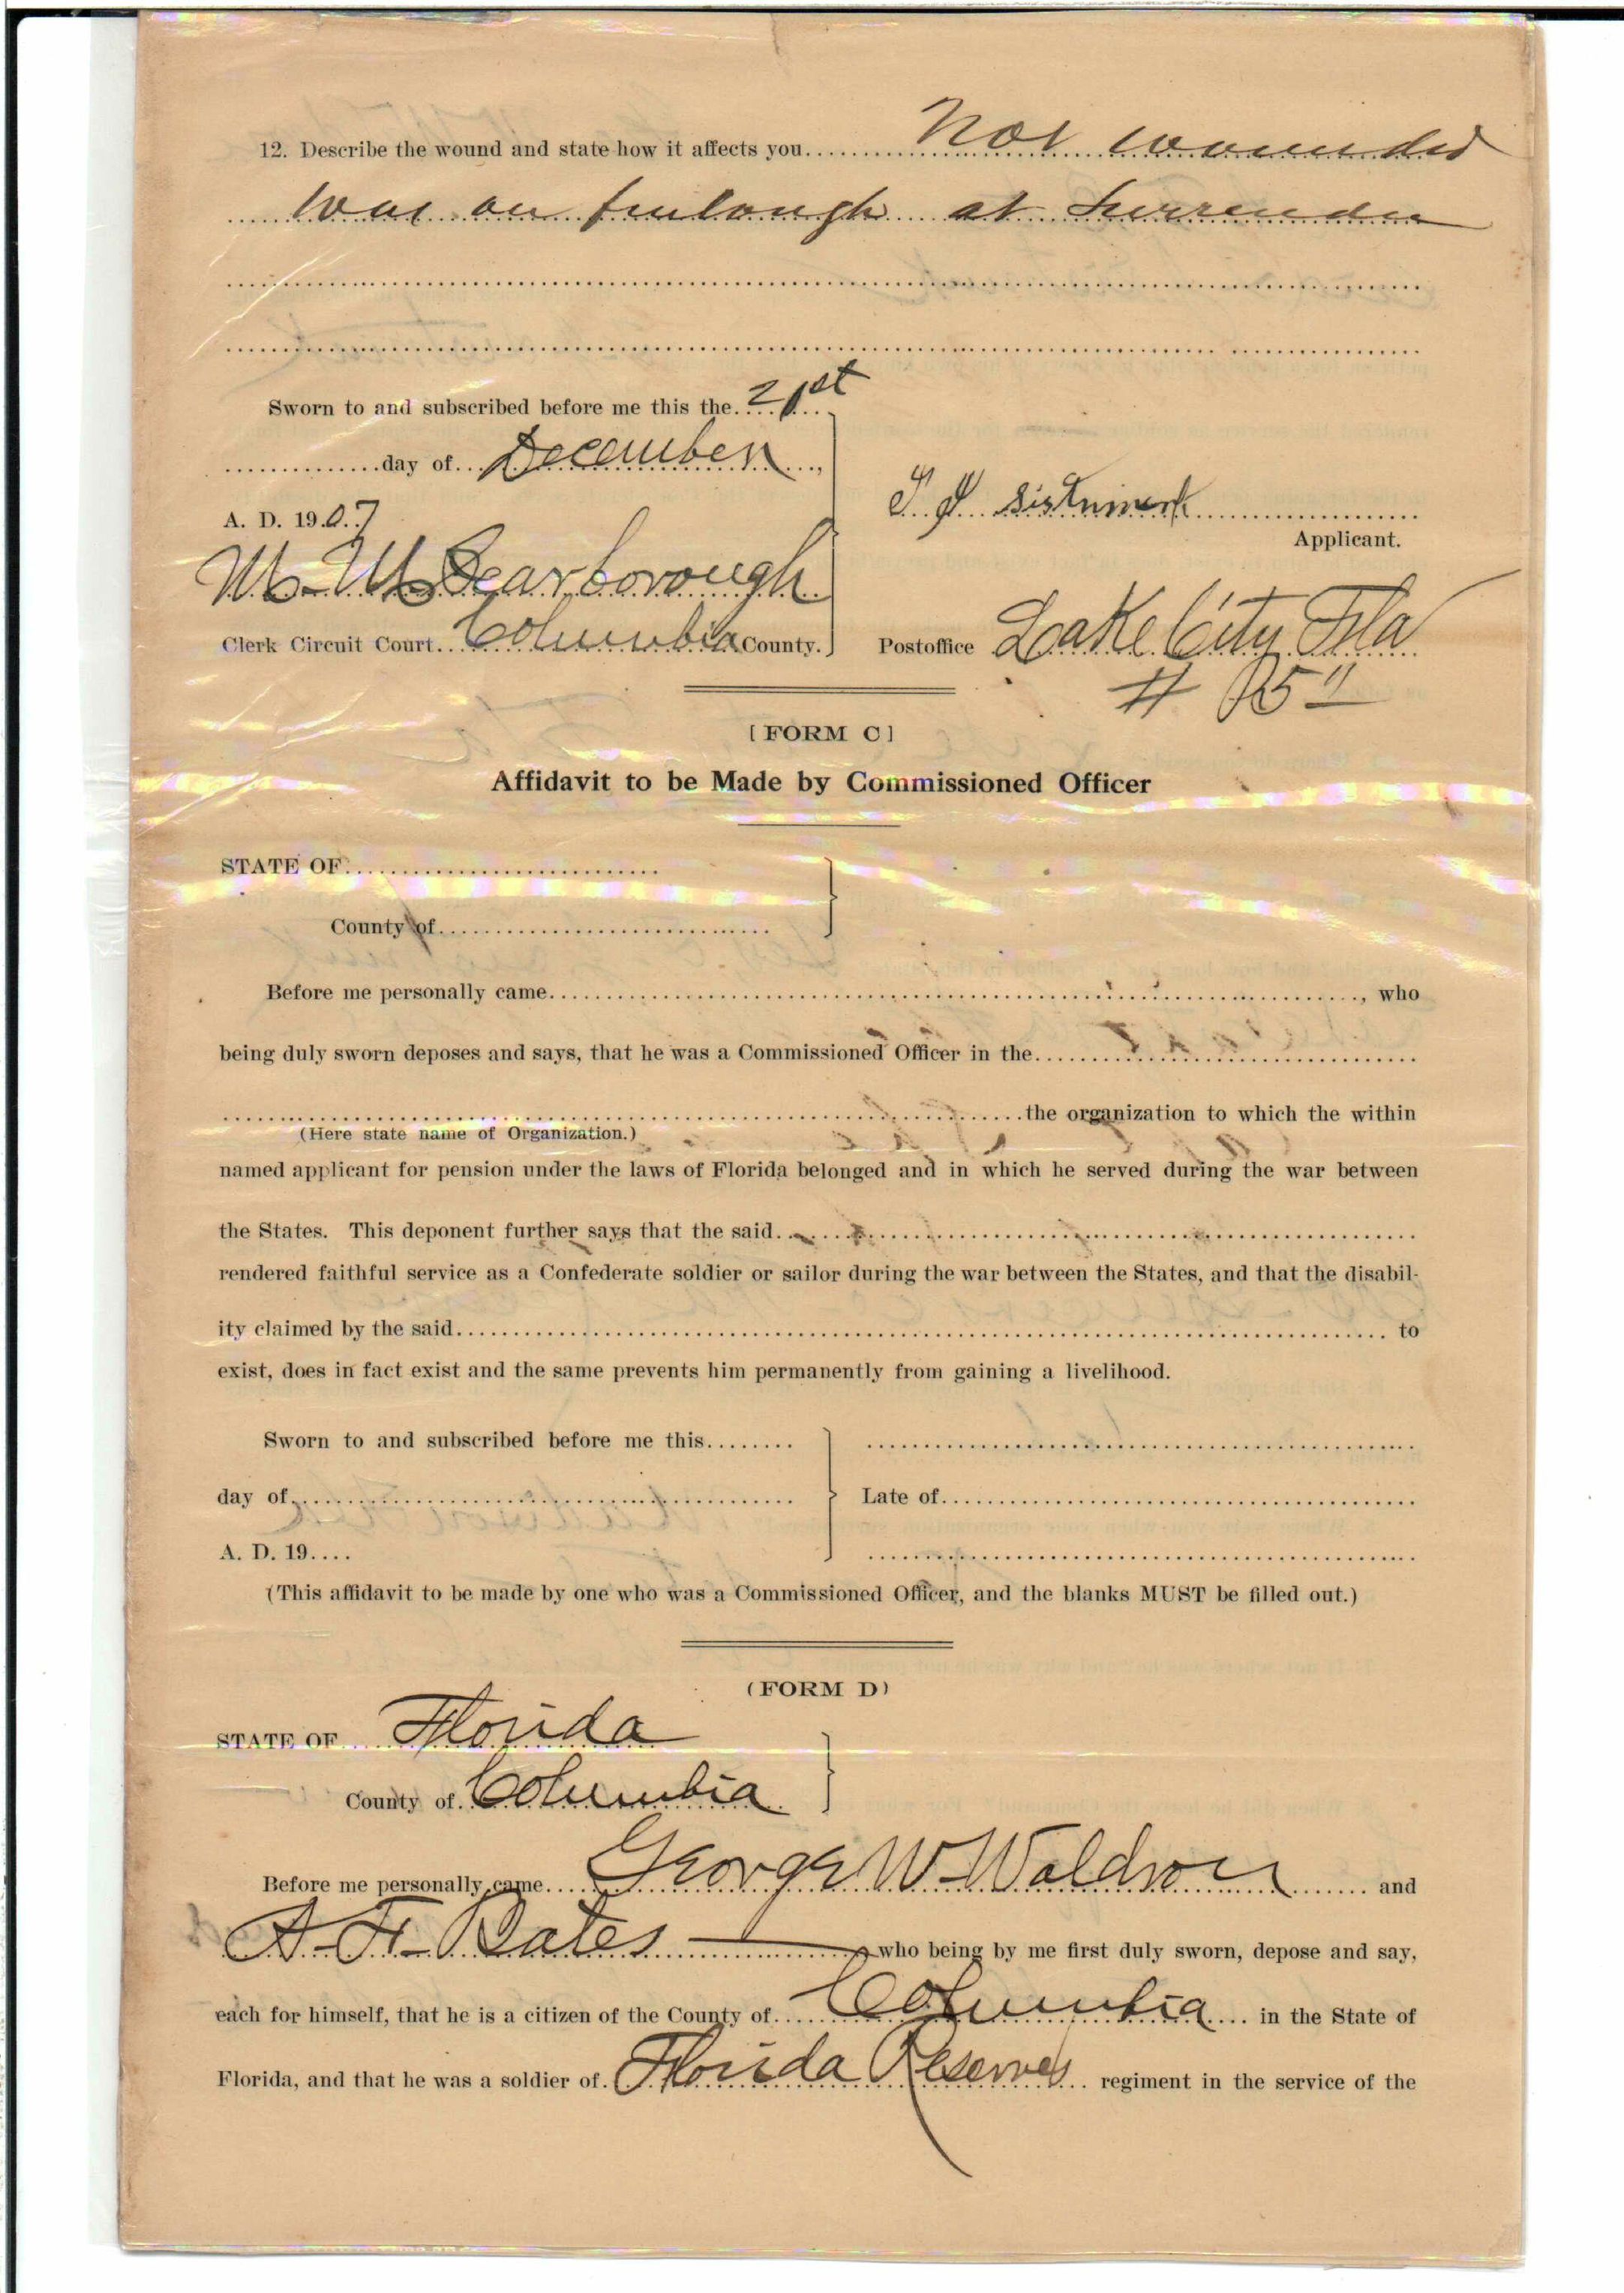 12. Describe the wound and state how it affects you........ Not wounded
was on furlough at Surrender
Sworn to and subscribed before me this the. 21st
...............day of.. December ....,
A. D. 1907
M. M. Scarborough
Clerk Circuit Court.. Columbia County.
T J
Applicant.
Postoffice Lake City Fla
[FORM C]
Affidavit to be Made by Commissioned Officer
STATE OF............................
County of..............................
Before me personally came..............................................................., who
being duly sworn deposes and says, that he was a Commissioned Officer in the...............................
...............................................................the organization to which the within
(Here state name of Organization.)
named applicant for pension under the laws of Florida belonged and in which he served during the war between
the States. This deponent further says that the said...............................................................
rendered faithful service as a Confederate soldier or sailor during the war between the States, and that the disabil-
ity claimed by the said............................................................... to
exist, does in fact exist and the same prevents him permanently from gaining a livelihood.
Sworn to and subscribed before me this........
day of...............................................
A. D. 19....
Late of...............................................
(This affidavit to be made by one who was a Commissioned Officer, and the blanks MUST be filled out.)
(FORM D)
STATE OF.... Florida
County of. Columbia
Before me personally came.... George W Waldron ........ and
A. F. Bates who being by me first duly sworn, depose and say,
each for himself, that he is a citizen of the County of..... Columbia .... in the State of
Florida, and that he was a soldier of. Florida Reserves .. regiment in the service of the